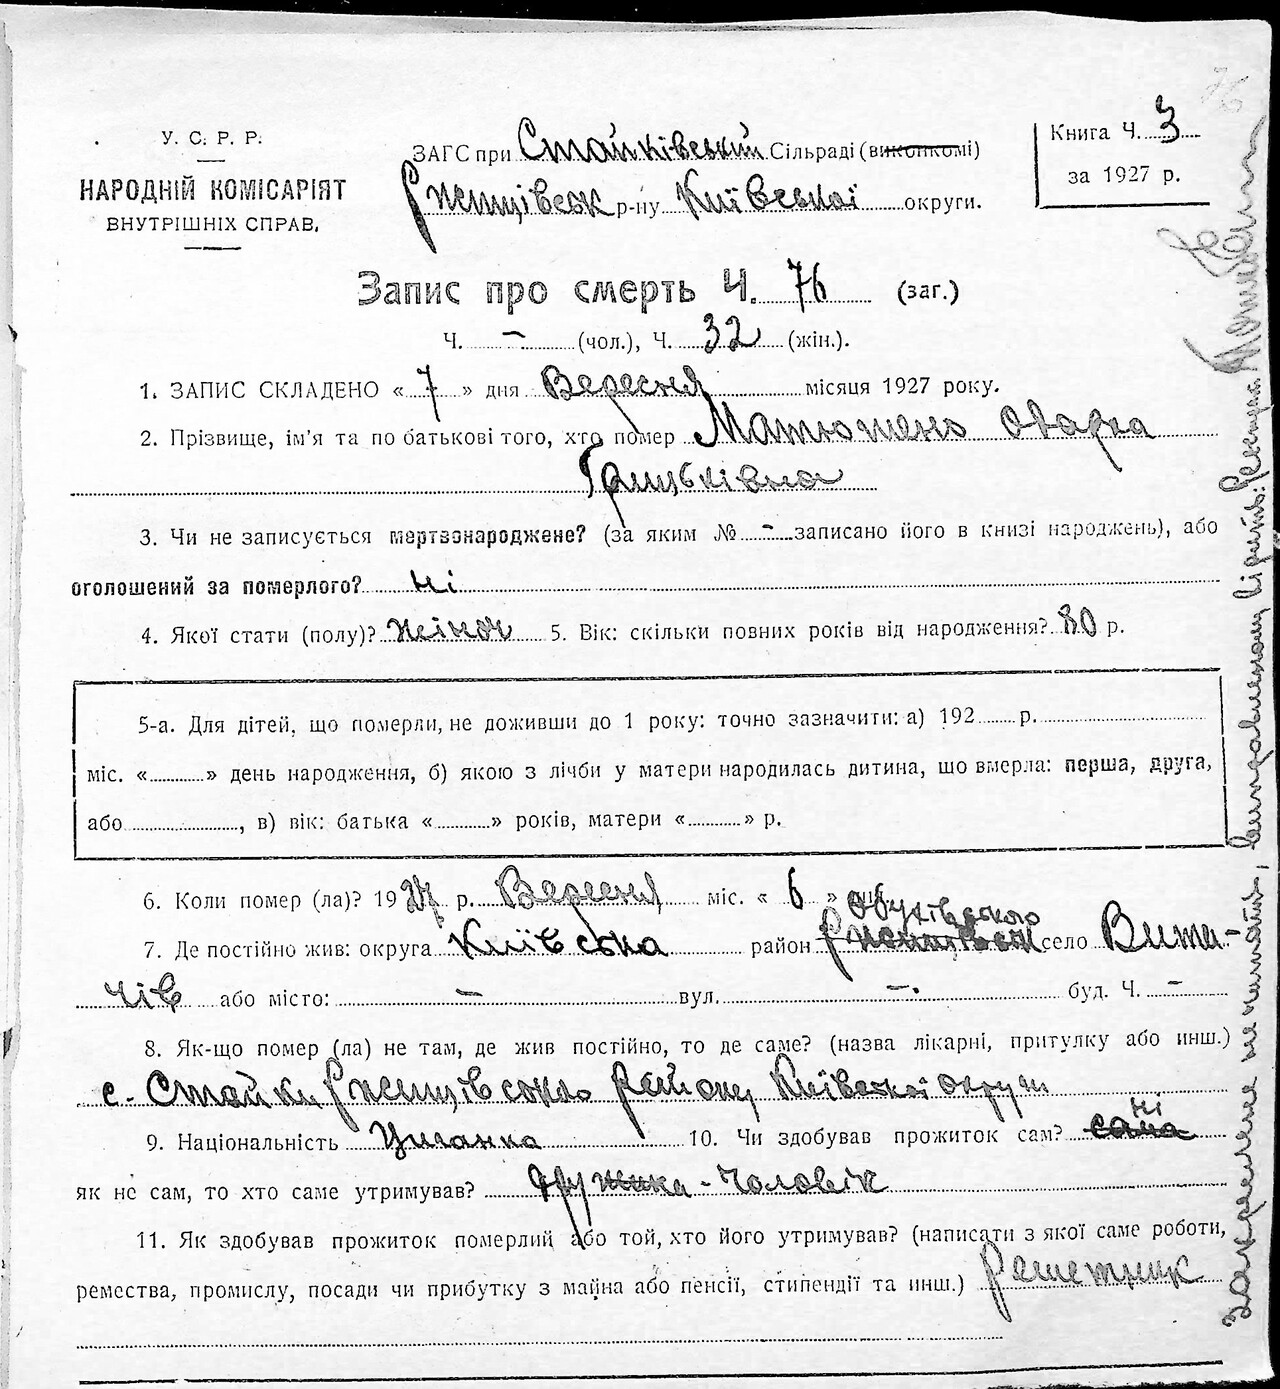 76
У. С. Р. Р.
НАРОДНІЙ КОМІСАРІЯТ
ВНУТРІШНІХ СПРАВ.
ЗАГС при Стайківський Сільраді (виконкомі)
Ржищівськ р-ну Київської округи.
Книга Ч. 3
за 1927 р.
Запис про смерть Ч. 76 (заг.)
Ч. - (чол.), Ч. 32 (жін.).
1. ЗАПИС СКЛАДЕНО « 7 » дня Вересня місяця 1927 року.
2. Прізвище, ім'я та по батькові того, хто помер Матюшенко Одарка
Грицьківна
3. Чи не записується мертвонароджене? (за яким № - записано його в книзі народжень), або
оголошений за померлого? ні
4. Якої стати (полу)? жіноч 5. Вік: скільки повних років від народження? 80 р.
5-а. Для дітей, що померли, не доживши до 1 року: точно зазначити: а) 192 р.
міс. « » день народження, б) якою з лічби у матери народилась дитина, що вмерла: перша, друга,
або , в) вік: батька « » років, матери « » р.
6. Коли помер (ла)? 1927 р. Вересня міс. « 6 » дня
7. Де постійно жив: округа Київська район Ржищівськ Обухівського село Вита-
чів або місто: - вул. -. буд. Ч. -
8. Як-що помер (ла) не там, де жив постійно, то де саме? (назва лікарні, притулку або инш.)
с. Стайки Ржищівського району Київської округи
9. Національність Циганка 10. Чи здобував прожиток сам? сама ні
як не сам, то хто саме утримував? дружина - Чоловік
11. Як здобував прожиток померлий або той, хто його утримував? (написати з якої саме роботи,
ремества, промислу, посади чи прибутку з майна або пенсії, стипендії та инш.) решетник
закреслене не читати, виправленому вірить: